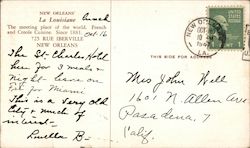 NEW ORLEANS'
La Louisiane
Lunch
The meeting place of the world. French
and Creole Cuisine. Since 1881. Oct 16
725 RUE IBERVILLE
NEW ORLEANS
The St. Charles Hotel
here for 3 meals &
night - leave on
for Miami
This is a very old
City & much of
interest -
Luella B-
THIS SIDE FOR ADDRESS
NEW
LA.
1
Mrs John Hell
1601 N. Allen Ave
Pasadena, 7
Calif.